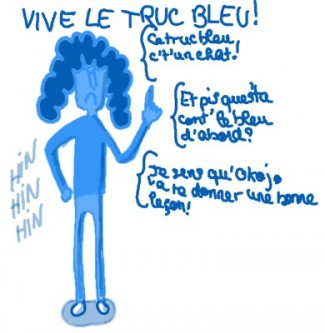 VIVE LE TRUC BLEU!
Ce truc bleu
c't'un chat!
Et pis qu'es't'a
cont' le bleu
d'abord?
Je sens qu'Okojo
va te donner une bonne
leçon!
HIN
HIN
HIN